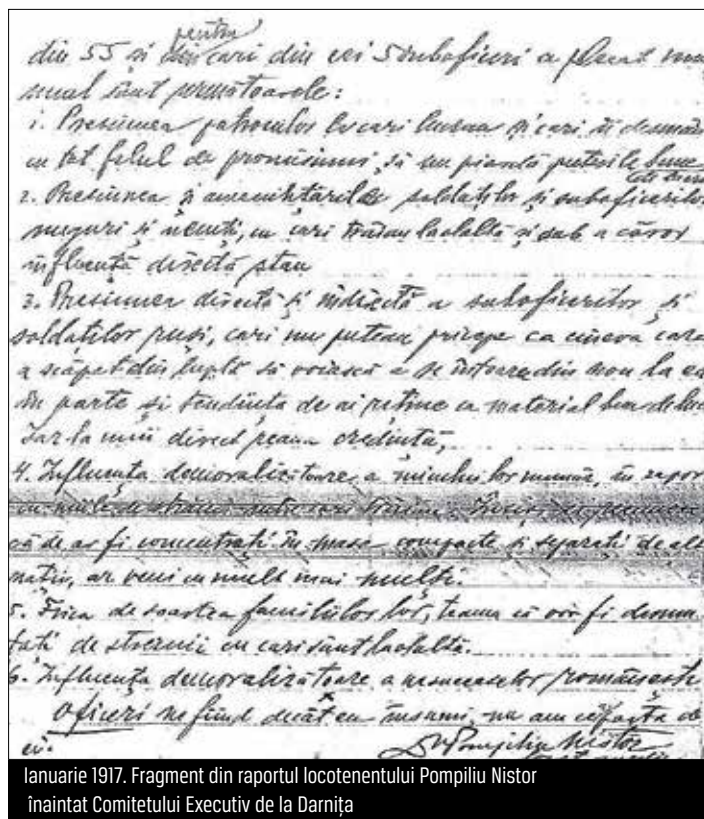 pentru
din 55 și din cari din cei 5 subofițeri a plecat
sunt următoarele:
1. Presiunea patronilor la cari lucrau și cari îi
cu tot felul de promisiuni, să nu piardă puterile bune
2. Presiunea și amenințările soldaților și subofițerilor
unguri și nemți, cu cari trăiau laolaltă și sub a căror
influență directă stau
3. Presiunea directă și indirectă a subofițerilor și
soldaților ruși, cari nu puteau pricepe ca cineva care
a scăpat din luptă să voiască a se întoarce din nou la ea
din parte și tendința de ai reține ca material bun de
iar la unii direct reaua credință,
4. Influența demoralizătoare a numărului lor, în
cari trăiau
că de ar fi concentrați în masse compacte și separați de alte
ar veni cu mult mai mulți.
5. Frica de soartea familiilor lor, teama că vor fi
de streinii cu cari sunt laolaltă.
6. Influența demoralizătoare a românești
Ofițeri nefiind decât eu însumi, nu am
Dr Pompiliu Nistor
Ianuarie 1917. Fragment din raportul locotenentului Pompiliu Nistor
înaintat Comitetului Executiv de la Darnița